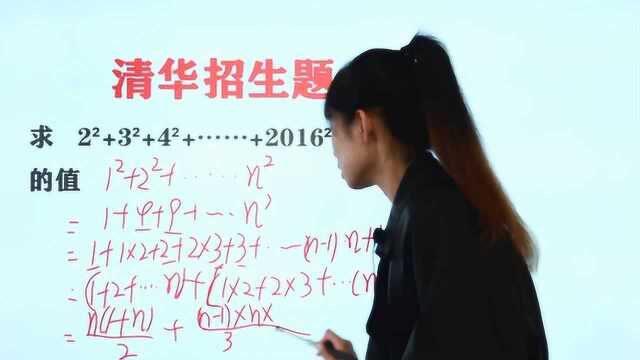 清华招生题
求 2²+3²+4²+……+2016²
的值 1²+2²+……n²
= 1+4+9+…n²
= 1+1×2+2+2×3+3+…(n-1)n+
= (1+2+…n)+(1×2+2×3+…(n
= n(1+n)/2 + (n-1)×n×/3